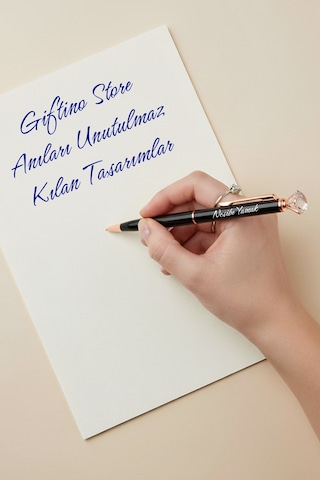 Giftino Store
Anıları Unutulmaz
Kılan Tasarımlar
Nişibe Yamak